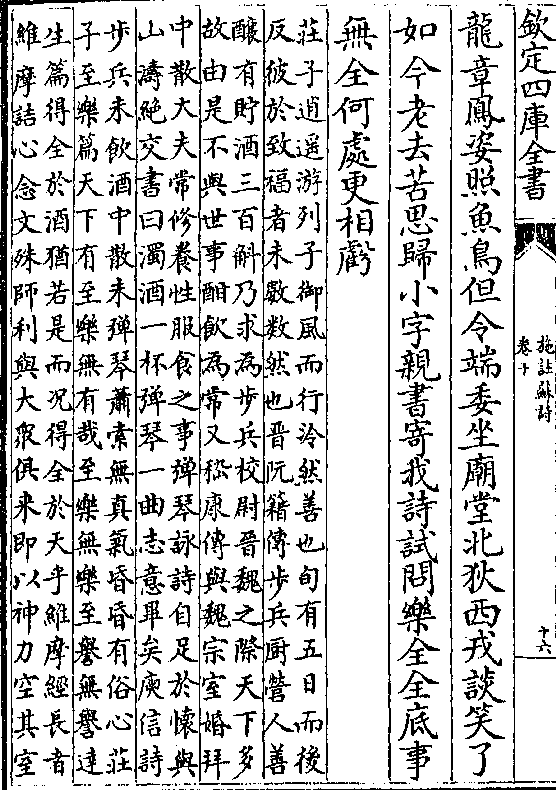 欽定四庫全書
施註蘇詩
卷十
十六
龍章鳳姿照魚鳥但令端委坐廟堂北狄西戎談笑了
如今老去苦思歸小字親書寄我詩試問樂全全底事
無全何處更相虧
莊子逍遥游列子御風而行泠然善也旬有五日而後
反彼於致福者未數數然也晉阮籍傳步兵厨營人善
釀有貯酒三百斛乃求為步兵校尉晉魏之際天下多
故由是不與世事酣飲為常又嵇康傳與魏宗室婚拜
中散大夫常修養性服食之事彈琴詠詩自足於懷與
山濤絶交書曰濁酒一杯彈琴一曲志意畢矣庾信詩
步兵未飲酒中散未彈琴蕭索無真氣昏昏有俗心莊
子至樂篇天下有至樂無有哉至樂無樂至譽無譽達
生篇得全於酒猶若是而况得全於天乎維摩經長者
維摩詰心念文殊師利與大衆俱来即以神力空其室